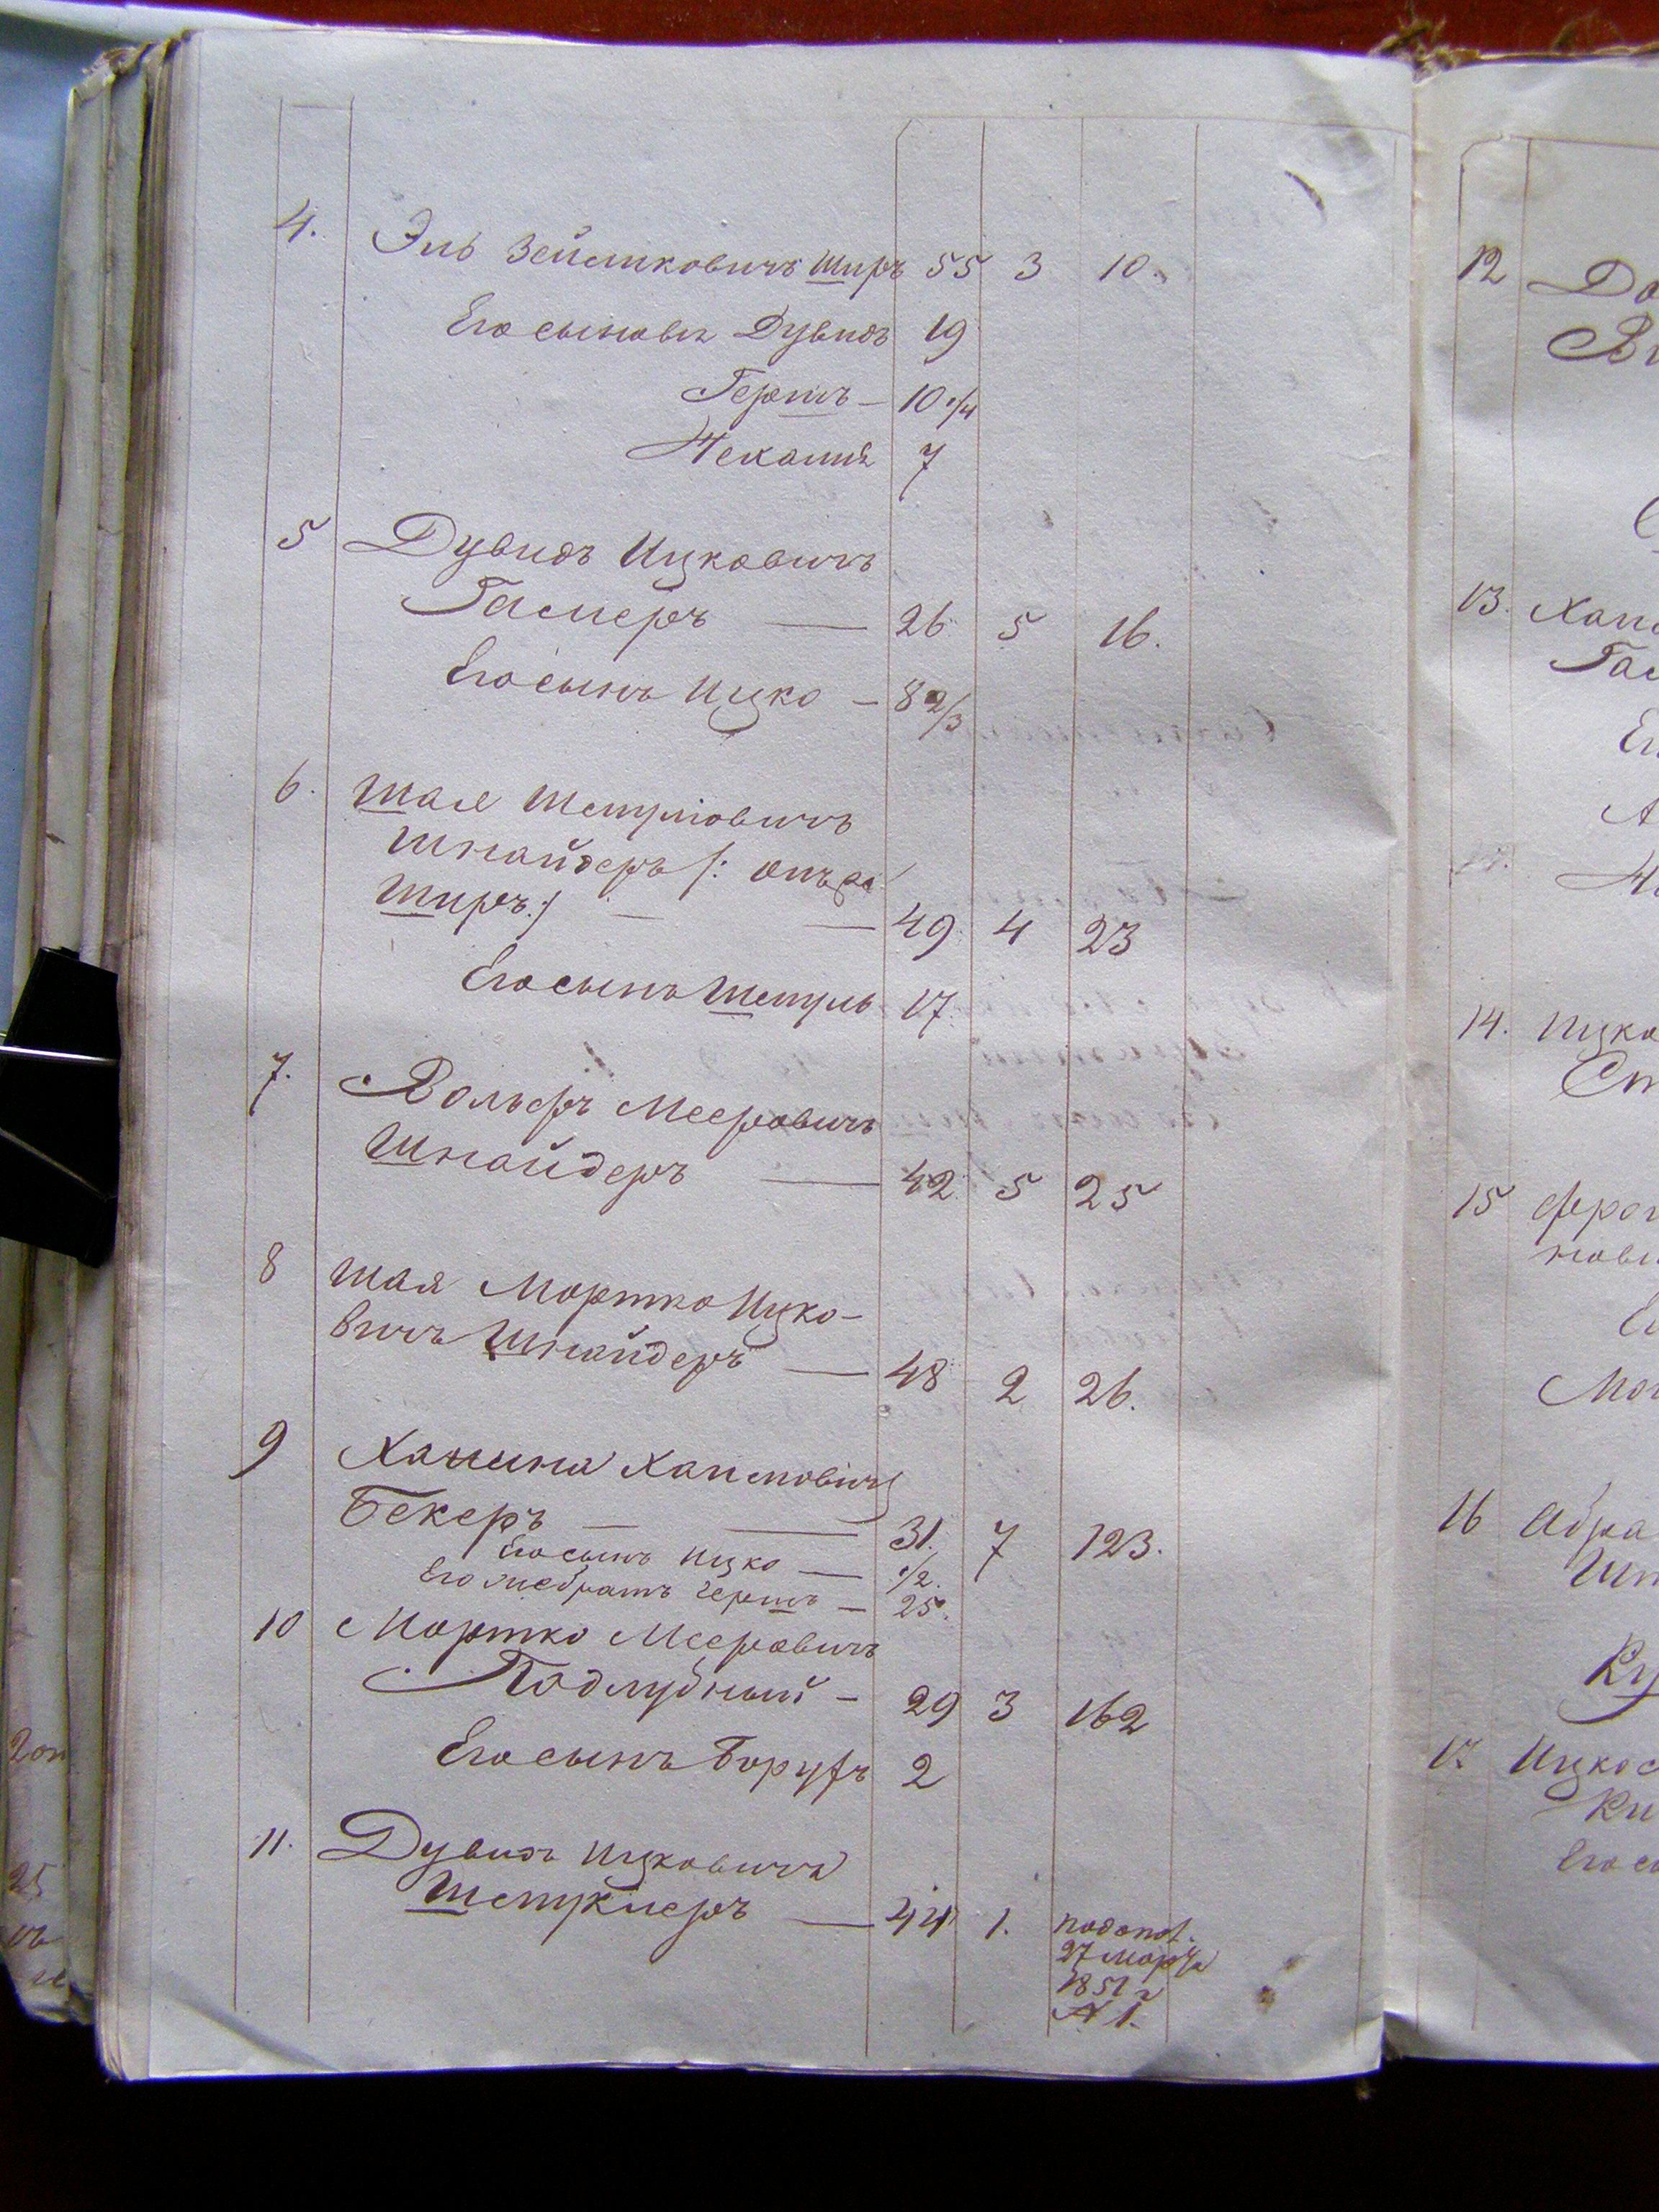 4. Эль Зейликовичъ Ширъ 55 3 10.
Его сыновья Дувидъ 19
Гершъ — 10 1/4
Хекаиль 7
5 Дувидъ Ицковичъ
Гаслеръ — 26 5 16.
Его сынъ Ицко — 8 2/3
6. Шая Шмулiовичъ
Шнайдеръ /: онъ же
Ширъ :/ — — 49 4 23
Его сынъ Шмуль 17.
7. Вольфъ Мееровичъ
Шнайдеръ — 42 5 25
8 Шая Мортко Ицко-
вичъ Шнайдеръ — 48 2 26.
9 Ханина Хаимовичъ
Бекеръ — — 31. 7 123.
Его сынъ Ицко — 1/2.
Его же братъ Гершъ — 25.
10 Мортко Мееровичъ
Подлубный — 29 3 162
Его сынъ Борухъ 2
11. Дувидъ Ицковичъ
Шмуклеръ — 44 1.
27 марта
1851 г
№ 1.
12 До
13. Хаи
Гас
Ег
А
14. Ицко
Ст
15 Фрои
нови
16 Абра
Шп
17. Ицко с
Ки
Его с